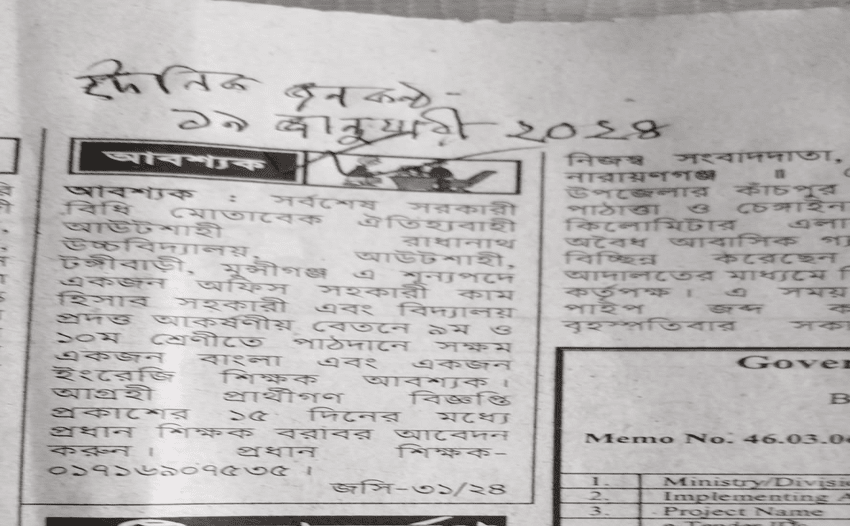 দৈনিক জনকণ্ঠ -
১৯ জানুয়ারী ২০২৪
আবশ্যক
আবশ্যক : সর্বশেষ সরকারী
বিধি মোতাবেক ঐতিহ্যবাহী
আউটশাহী রাধানাথ
উচ্চবিদ্যালয়, আউটশাহী,
টঙ্গীবাড়ী, মুন্সীগঞ্জ এ শূন্যপদে
একজন অফিস সহকারী কাম
হিসাব সহকারী এবং বিদ্যালয়
প্রদত্ত আকর্ষণীয় বেতনে ৯ম ও
১০ম শ্রেণীতে পাঠদানে সক্ষম
একজন বাংলা এবং একজন
ইংরেজি শিক্ষক আবশ্যক।
আগ্রহী প্রার্থীগণ বিজ্ঞপ্তি
প্রকাশের ১৫ দিনের মধ্যে
প্রধান শিক্ষক বরাবর আবেদন
করুন। প্রধান শিক্ষক-
০১৭১৬৯০৭৫৩৫।
জসি-৩১/২৪
নিজস্ব সংবাদদাতা,
নারায়ণগঞ্জ ॥
উপজেলার কাঁচপুর
পাঠাত্তা ও চেঙ্গাইন
কিলোমিটার এলা
অবৈধ আবাসিক গ্যা
বিচ্ছিন্ন করেছেন
আদালতের মাধ্যমে
কর্তৃপক্ষ। এ সময়
পাইপ জব্দ
বৃহস্পতিবার সকা
Gover
B
Memo No. 46.03.0
1. Ministry/Divisi
2. Implementing A
3. Project Name